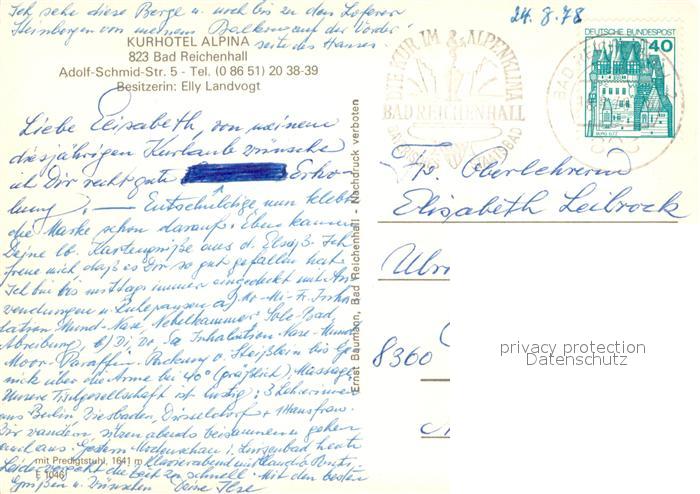 Ich sehe diese Berge u. noch bis zu den Loferer
Steinbergen von meinem Balkon auf der Vorder-
seite des Hauses.
24. 8. 78
KURHOTEL ALPINA
823 Bad Reichenhall
Adolf-Schmid-Str. 5 - Tel. (0 86 51) 20 38-39
Besitzerin: Elly Landvogt
DEUTSCHE BUNDESPOST
40
BURG ELTZ
DIE KUR IM ALPENKLIMA
BAD REICHENHALL
Liebe Elisabeth, von meinem
diesjährigen Kurlaub wünsche
ich Dir recht gute Erho-
lung. — Entschuldige, nun klebt
die Marke schon darauf. Eben kamen
Deine lb. Kartengrüße aus d. Elsaß. Ich
freue mich, daß es Dir so gut gefallen hat.
Ich bin bis mittags immer eingedeckt mit An-
wendungen u. Ruhepausen a) Mo-Mi-Fr Inha-
lation Mund-Nase, Nebelkammer, Sole-Bad,
Abreibung b) Di, Do, Sa Inhalation Nase-Mund
Moor-Paraffin-Packung v. Steißbein bis Ge-
nick über die Arme bei 40° (gräßlich), Massage.
Unsere Tischgesellschaft ist lustig: 3 Lehrerinnen
aus Berlin, Wiesbaden, Düsseldorf + 1 Hausfrau.
Wir wandern, sitzen abends beisammen, gehen
auch aus. Gestern Modenschau i. heute
Klavierabend mit
Leider vergeht die Zeit zu schnell. Mit den besten
Grüßen u. Wünschen Deine Ilse
mit Predigtstuhl, 1641 m
E 1046
Ernst Baumann, Bad Reichenhall - Nachdruck verboten
Fr. Oberlehrerin
Elisabeth Leibrock
8360
privacy protection
Datenschutz